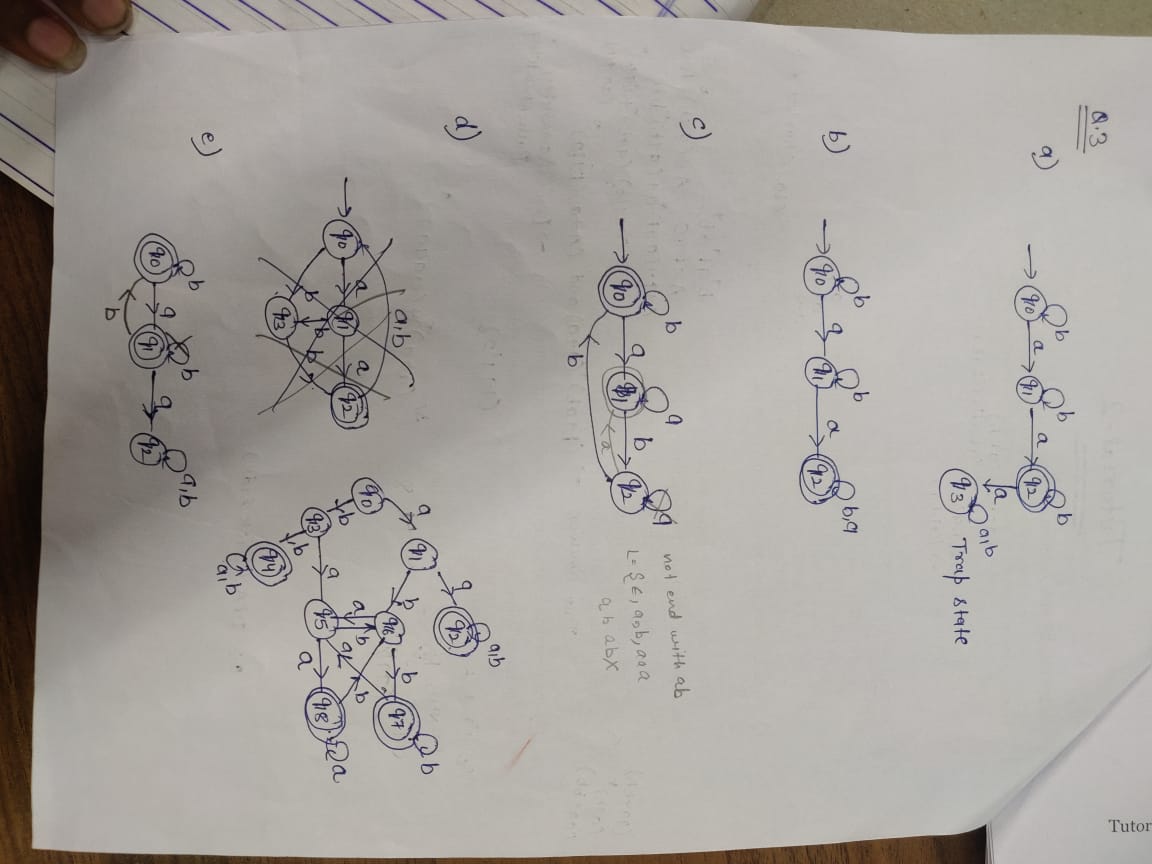 Q.3
a)
q0
b
a
q1
b
a
q2
b
a
q3
a,b
Trap state
b)
q0
b
a
q1
b
a
q2
b,a
c)
q0
b
a
q1
a
b
a
q2
a
b
not end with ab
L = {ε, a,b, aaa
ab abX
d)
q0
a
q1
a
q2
a,b
b
q3
b
b
q0
a
q1
a
q2
a,b
b
q3
b
q4
a,b
a
b
q5
a
b
q6
b
q7
b
a
a
q8
b
a
e)
q0
b
a
b
q1
b
a
q2
a,b
Tutor